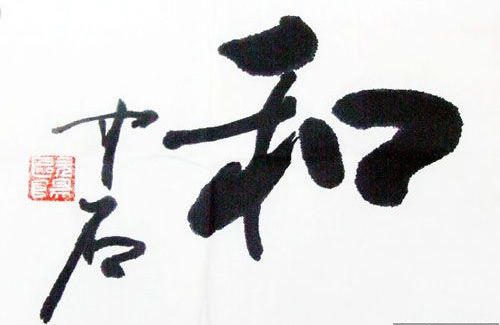 和
中石